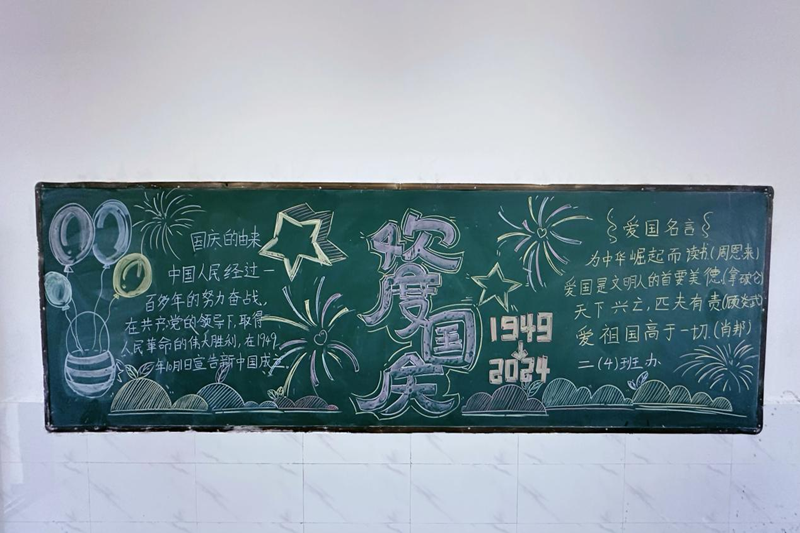 国庆的由来
中国人民经过一
百多年的努力奋战,
在共产党的领导下,取得
人民革命的伟大胜利,在1949
年10月1日宣告新中国成立.
欢度国庆
1949
2024
爱国名言
为中华崛起而读书(周恩来)
爱国是文明人的首要美德.(拿破仑)
天下兴亡,匹夫有责(顾炎武)
爱祖国高于一切.(肖邦)
二(4)班办